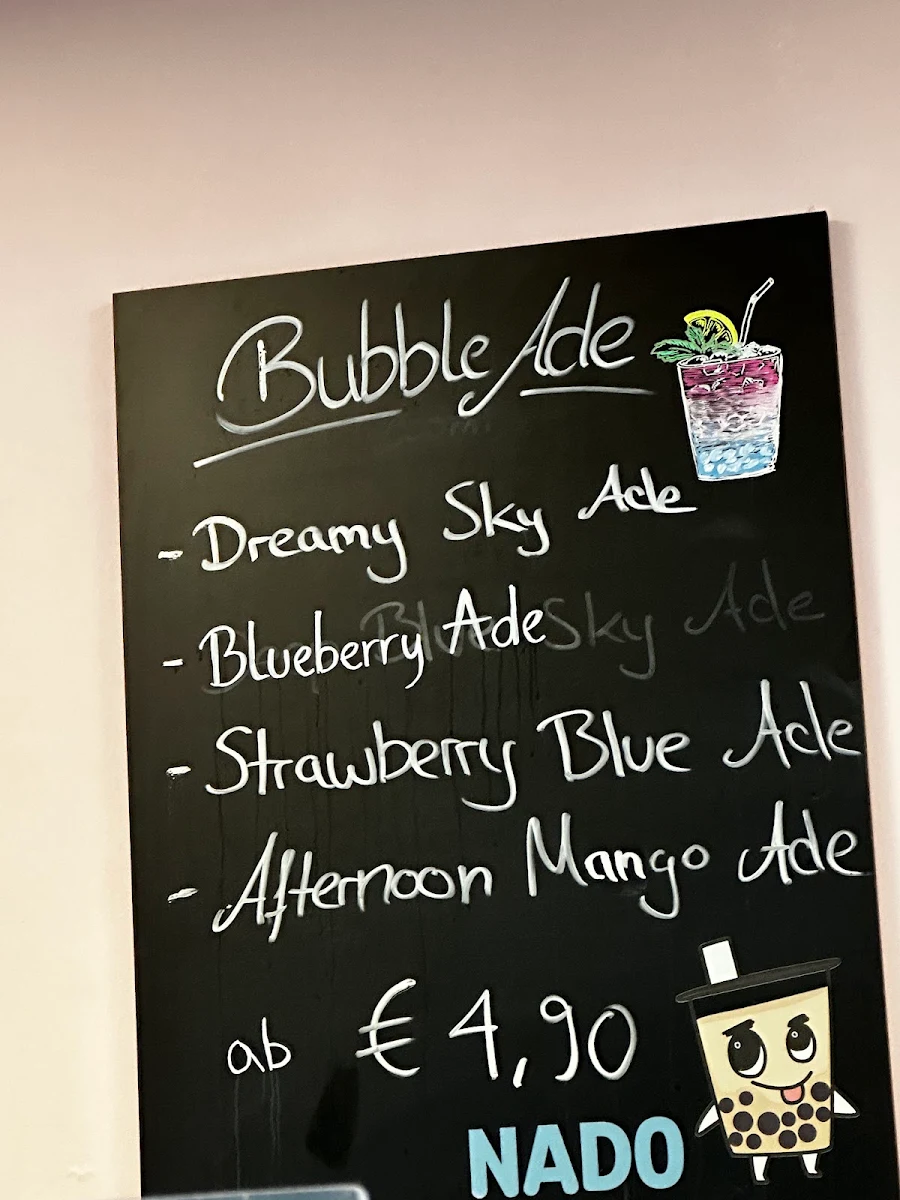 Bubble Ade
- Dreamy Sky Ade
- Blueberry Ade
- Strawberry Blue Ade
- Afternoon Mango Ade
ab € 4,90
NADO